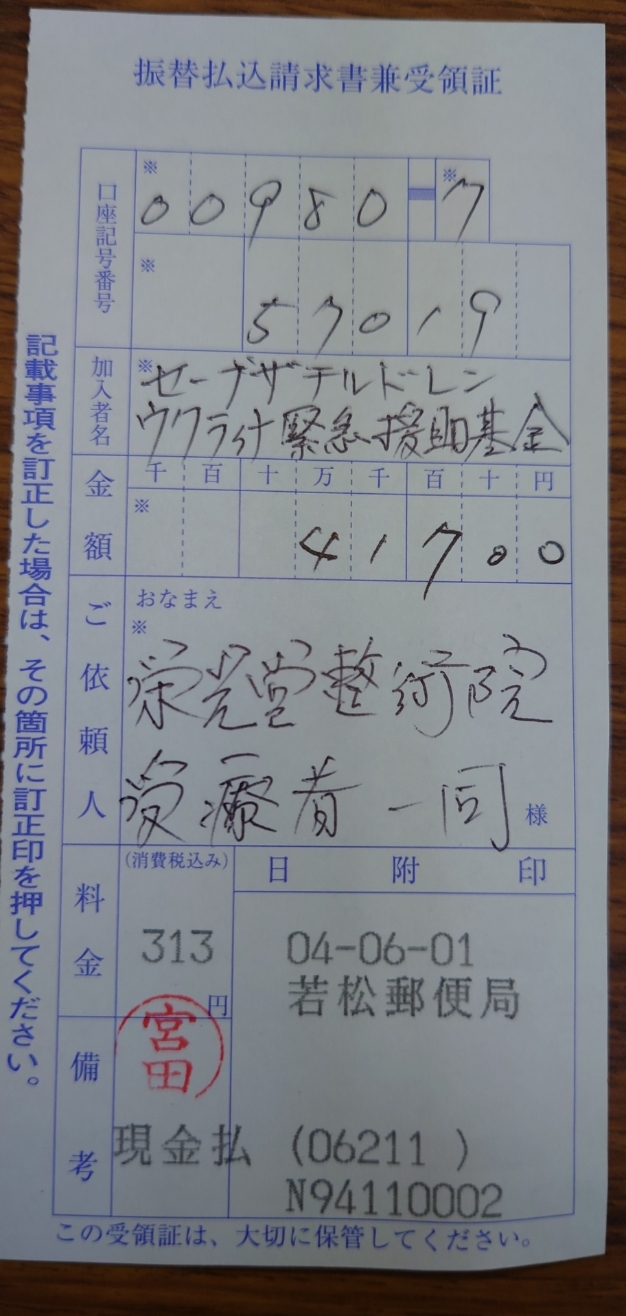 振替払込請求書兼受領証
口座記号番号
※ ※
00980-7
※
57019
加入者名
※セーブザチルドレン
ウクライナ緊急援助基金
金額
千 百 十 万 千 百 十 円
※
41700
ご依頼人
おなまえ
※
栄光堂整術院
受療者一同 様
料金
(消費税込み)
313
円
日附印
04-06-01
若松郵便局
備考
宮田
現金払 (06211 )
N94110002
この受領証は、大切に保管してください。
記載事項を訂正した場合は、その箇所に訂正印を押してください。